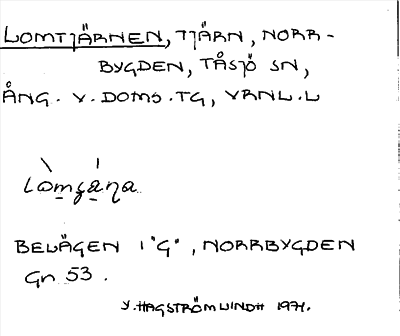 LOMTJÄRNEN, TJÄRN, NORR-
BYGDEN, TÅSJÖ SN,
ÅNG. V. DOMS. TG, VRNL. L
Lòmʒa̱ṇa
BELÄGEN I "G", NORRBYGDEN
Gn 53.
Y. HAGSTRÖM LINDH 1971.